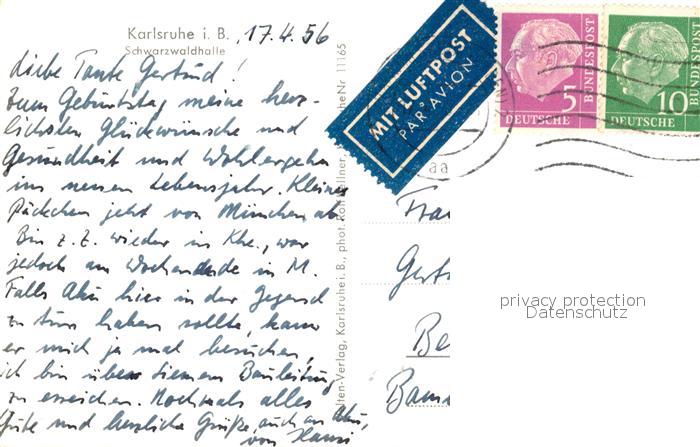 Karlsruhe i. B. 17.4.56
Schwarzwaldhalle
Liebe Tante Gertrud!
Zum Geburtstag meine herz-
lichsten Glückwünsche und
Gesundheit und Wohlergehen
im neuen Lebensjahr. Kleines
Päckchen jetzt von München ab.
Bin z. Z. wieder in Khe., war
jedoch am Wochenende in M.
Falls Aku hier in der Gegend
zu tun haben sollte, kann
er mich ja mal besuchen,
ich bin über Siemens Bauleitung
zu erreichen. Nochmals alles
Gute und herzliche Grüße, auch an Aku,
von Hansi
lten-Verlag, Karlsruhe i. B., phot. Rolf Kellner,
he Nr 11165
MIT LUFTPOST
PAR AVION
5
DEUTSCHE
BUNDESPOST
10
DEUTSCHE
BUNDESPOST
aa
Frau
Gert
Be
Bam
privacy protection
Datenschutz